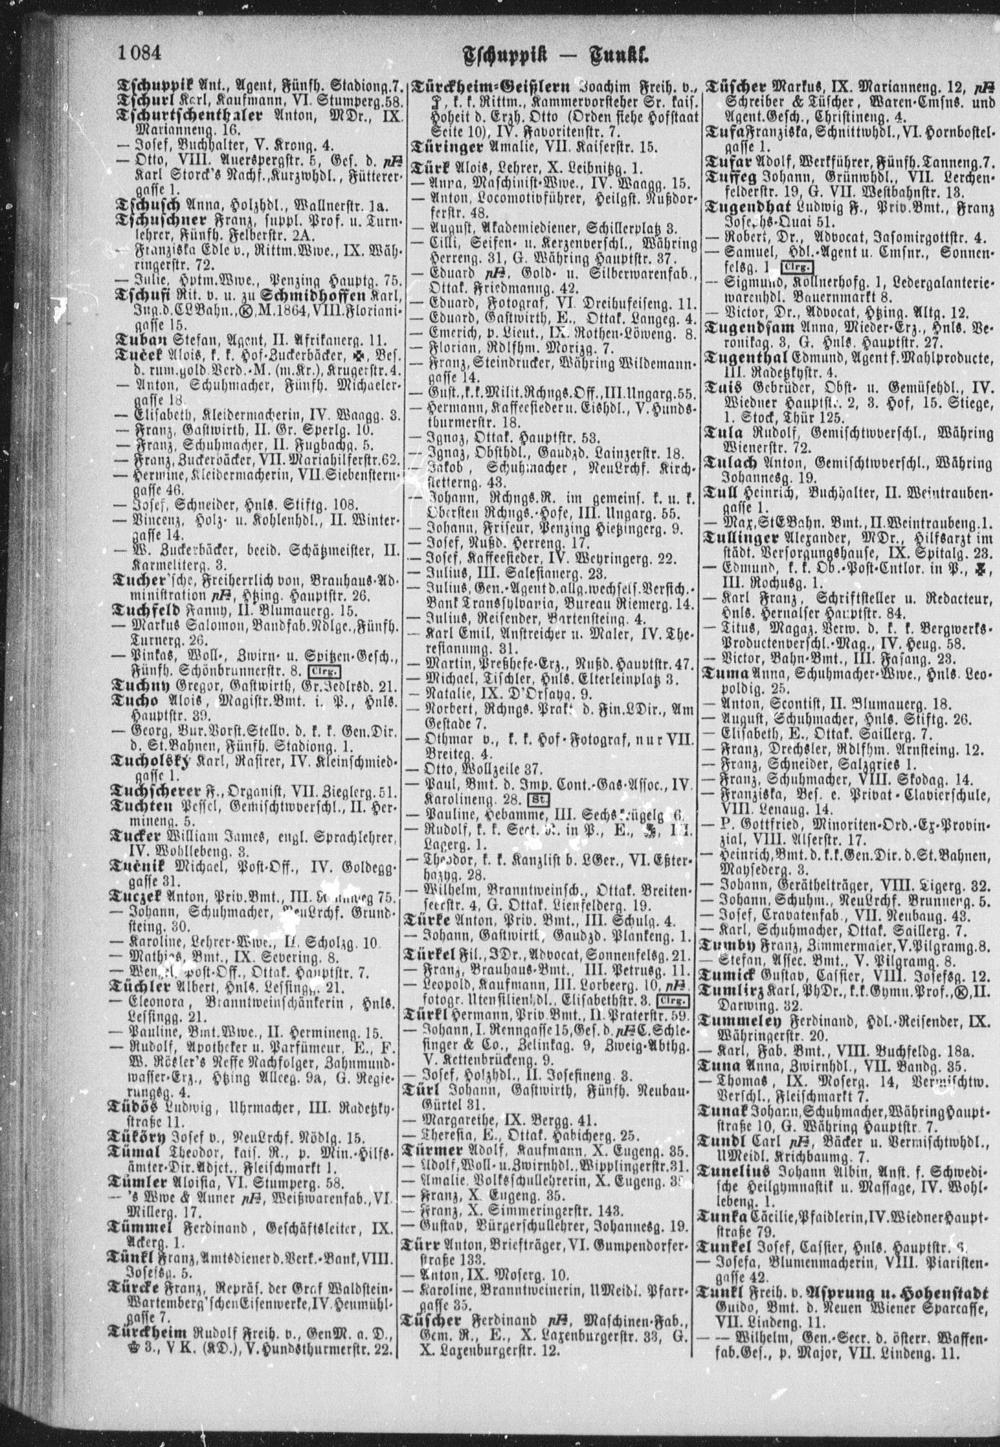 1084
Tschuppik — Tunkl.
Tschuppik Ant., Agent, Fünfh. Stadiong.7.
Tschurl Karl, Kaufmann, VI. Stumperg.58.
Tschurtschenthaler Anton, MDr., IX.
Marianneng. 16.
— Josef, Buchhalter, V. Krong. 4.
— Otto, VIII. Auerspergstr. 5, Ges. d.
Karl Storck's Nachf., Kurzwhdl., Fütterer-
gasse 1.
Tschusch Anna, Holzhdl., Wallnerstr. 1a.
Tschuschner Franz, suppl. Prof. u. Turn-
lehrer, Fünfh. Felberstr. 2A.
— Franziska Edle v., Rittm.Wwe., IX. Wäh-
ringerstr. 72.
— Julie, Hptm.Wwe., Penzing Hauptg. 75.
Tschusi Rit. v. u. zu Schmidhoffen Karl,
Ing.d.CLBahn., Ⓚ, M.1864, VIII.Floriani-
gasse 15.
Tuban Stefan, Agent, II. Afrikanerg. 11.
Tuček Alois, k. k. Hof-Zuckerbäcker, ✠, Bes.
d. rum.gold.Verd.-M. (m.Kr.), Krugerstr.4.
— Anton, Schuhmacher, Fünfh. Michaeler-
gasse 18.
— Elisabeth, Kleidermacherin, IV. Waagg. 3.
— Franz, Gastwirth, II. Gr. Sperlg. 10.
— Franz, Schuhmacher, II. Fugbachg. 5.
— Franz, Zuckerbäcker, VII. Mariahilferstr.62.
— Hermine, Kleidermacherin, VII.Siebenstern-
gasse 46.
— Josef, Schneider, Hnls. Stiftg. 108.
— Vincenz, Holz- u. Kohlenhdl., II. Winter-
gasse 14.
— W. Zuckerbäcker, beeid. Schätzmeister, II.
Karmeliterg. 3.
Tucher'sche, Freiherrlich von, Brauhaus-Ad-
ministration, Htzing. Hauptstr. 26.
Tuchfeld Fanny, II. Blumauerg. 15.
— Markus Salomon, Bandfab.Ndlge., Fünfh.
Turnerg. 26.
— Pinkas, Woll-, Zwirn- u. Spitzen-Gesch.,
Fünfh. Schönbrunnerstr. 8. Clrg.
Tuchny Gregor, Gastwirth, Gr.Jedlrsd. 21.
Tucho Alois, Magistr.Bmt. i. P., Hnls.
Hauptstr. 39.
— Georg, Bur.Vorst.Stellv. d. k. k. Gen.Dir.
d. St.Bahnen, Fünfh. Stadiong. 1.
Tucholsky Karl, Rasirer, IV. Kleinschmied-
gasse 1.
Tuchscherer F., Organist, VII. Zieglerg. 51.
Tuchten Pessel, Gemischtwverschl., II. Her-
mineng. 5.
Tucker William James, engl. Sprachlehrer,
IV. Wohllebeng. 3.
Tučnik Michael, Post-Off., IV. Goldegg-
gasse 31.
Tuczek Anton, Priv.Bmt., III. 75.
— Johann, Schuhmacher, NeuLrchf. Grund-
steing. 30.
— Karoline, Lehrer-Wwe., II. Scholzg. 10.
— Mathias, Bmt., IX. Severing. 8.
— Wenzel, Post-Off., Ottak. Hauptstr. 7.
Tüchler Albert, Hnls. Lessingg. 21.
— Eleonora, Branntweinschänkerin, Hnls.
Lessingg. 21.
— Pauline, Bmt.Wwe., II. Hermineng. 15.
— Rudolf, Apotheker u. Parfümeur, E., F.
W. Rösler's Neffe Nachfolger, Zahnmund-
wasser-Erz., Htzing Alleeg. 9a, G. Regie-
rungsg. 4.
Tüdös Ludwig, Uhrmacher, III. Radetzky-
straße 11.
Tüköry Josef v., NeuLrchf. Nödlg. 15.
Tümal Theodor, kais. R., p. Min.-Hilfs-
ämter-Dir.Adjct., Fleischmarkt 1.
Tümler Aloisia, VI. Stumperg. 58.
— 's Wwe & Auner, Weißwarenfab., VI.
Millerg. 17.
Tümmel Ferdinand, Geschäftsleiter, IX.
Ackerg. 1.
Tünkl Franz, Amtsdiener d. Verk.-Bank, VIII.
Josefsg. 5.
Türcke Franz, Repräs. der Graf Waldstein-
Wartemberg'schen Eisenwerke, IV. Heumühl-
gasse 7.
Türckheim Rudolf Freih. v., GenM. a. D.,
3., V K. (KD.), V. Hundsthurmerstr. 22.
Türckheim-Geißlern Joachim Freih. v.,
k. k. Rittm., Kammervorsteher Sr. kais.
Hoheit d. Erzh. Otto (Orden siehe Hofstaat
Seite 10), IV. Favoritenstr. 7.
Türinger Amalie, VII. Kaiserstr. 15.
Türk Alois, Lehrer, X. Leibnitzg. 1.
— Anna, Maschinist-Wwe., IV. Waagg. 15.
— Anton, Locomotivführer, Heilgst. Nußdor-
ferstr. 48.
— August, Akademiediener, Schillerplatz 3.
— Cilli, Seifen- u. Kerzenverschl., Währing
Herreng. 31, G. Währing Hauptstr. 37.
— Eduard, Gold- u. Silberwarenfab.,
Ottak. Friedmanng. 42.
— Eduard, Fotograf, VI. Dreihufeiseng. 11.
— Eduard, Gastwirth, E., Ottak. Langeg. 4.
— Emerich, p. Lieut., IX. Rothen-Löweng. 8.
— Florian, Rdlfhm. Morizg. 7.
— Franz, Steindrucker, Währing Wildemann-
gasse 14.
— Gust., k.k.Milit.Rchngs.Off., III.Ungarg.55.
— Hermann, Kaffeesieder u. Eishdl., V. Hunds-
thurmerstr. 18.
— Ignaz, Ottak. Hauptstr. 53.
— Ignaz, Obsthdl., Gaudzd. Lainzerstr. 18.
— Jakob, Schuhmacher, NeuLrchf. Kirch-
stetterng. 43.
— Johann, Rchngs.R. im gemeins. k. u. k.
Obersten Rchngs.-Hofe, III. Ungarg. 55.
— Johann, Friseur, Penzing Hietzingerg. 9.
— Josef, Nußd. Herreng. 17.
— Josef, Kaffeesieder, IV. Weyringerg. 22.
— Julius, III. Salesianerg. 23.
— Julius, Gen.-Agent d.allg.wechself.Versich.-
Bank Transsylvania, Bureau Riemerg. 14.
— Julius, Reisender, Bartensteing. 4.
— Karl Emil, Anstreicher u. Maler, IV. The-
resianumg. 31.
— Martin, Preßhefe-Erz., Nußd. Hauptstr. 47.
— Michael, Tischler, Hnls. Elterleinplatz 3.
— Natalie, IX. D'Orsayg. 9.
— Norbert, Rchngs. Prakt. d. Fin.LDir., Am
Gestade 7.
— Othmar v., k. k. Hof-Fotograf, nur VII.
Breiteg. 4.
— Otto, Wollzeile 37.
— Paul, Bmt. d. Imp. Cont.-Gas-Assoc., IV.
Karolineng. 28. St.
— Pauline, Hebamme, III. Sechskrügelg. 6.
— Rudolf, k. k. Sect. R. in P., E.,
Lagerg. 1.
— Theodor, k. k. Kanzlist b. LGer., VI. Eßter-
házyg. 28.
— Wilhelm, Branntweinsch., Ottak. Breiten-
seerstr. 4, G. Ottak. Lienfelderg. 19.
Türke Anton, Priv. Bmt., III. Schulg. 4.
— Johann, Gastwirth, Gaudzd. Plankeng. 1.
Türkel Fil., JDr., Advocat, Sonnenfelsg. 21.
— Franz, Brauhaus-Bmt., III. Petrusg. 11.
— Leopold, Kaufmann, III. Lorbeerg. 10,
fotogr. Utensilienhdl., Elisabethstr. 3. Clrg.
Türkl Hermann, Priv.Bmt., II. Praterstr. 59.
— Johann, I. Renngasse 15, Ges. d. C. Schle-
singer & Co., Zelinkag. 9, Zweig-Abthg.
V. Kettenbrückeng. 9.
— Josef, Holzhdl., II. Josefineng. 3.
Türl Johann, Gastwirth, Fünfh. Neubau-
Gürtel 31.
— Margarethe, IX. Bergg. 41.
— Theresia, E., Ottak. Habicherg. 25.
Türmer Adolf, Kaufmann, X. Eugeng. 35.
— Adolf, Woll- u. Zwirnhdl., Wipplingerstr.31.
— Amalie, Volksschullehrerin, X. Eugeng. 35
— Franz, X. Eugeng. 35.
— Franz, X. Simmeringerstr. 143.
— Gustav, Bürgerschullehrer, Johannesg. 19.
Türr Anton, Briefträger, VI. Gumpendorfer-
straße 133.
— Anton, IX. Moserg. 10.
— Karoline, Branntweinerin, UMeidl. Pfarr-
gasse 35.
Tüscher Ferdinand, Maschinen-Fab.,
Gem. R., E., X. Laxenburgerstr. 33, G.
X. Laxenburgerstr. 12.
Tüscher Markus, IX. Marianneng. 12,
Schreiber & Tüscher, Waren-Cmsns. und
Agent.Gesch., Christineng. 4.
Tufa Franziska, Schnittwhdl., VI. Hornbostel-
gasse 1.
Tufar Adolf, Werkführer, Fünfh. Tanneng.7.
Tuffeg Johann, Grünwhdl., VII. Lerchen-
felderstr. 19, G. VII. Westbahnstr. 13.
Tugendhat Ludwig F., Priv.Bmt., Franz
Josephs-Quai 51.
— Robert, Dr., Advocat, Jasomirgottstr. 4.
— Samuel, Hdl.-Agent u. Cmsnr., Sonnen-
felsg. 1. Clrg.
— Sigmund, Kollnerhofg. 1, Ledergalanterie-
warenhdl. Bauernmarkt 8.
— Victor, Dr., Advocat, Htzing. Altg. 12.
Tugendsam Anna, Mieder-Erz., Hnls. Ve-
ronikag. 3, G. Hnls. Hauptstr. 27.
Tugenthal Edmund, Agent f. Mahlproducte,
III. Radetzkystr. 4.
Tuis Gebrüder, Obst- u. Gemüsehdl., IV.
Wiedner Hauptstr. 2, 3. Hof, 15. Stiege,
1. Stock, Thür 125.
Tula Rudolf, Gemischtwverschl., Währing
Wienerstr. 72.
Tulach Anton, Gemischtwverschl., Währing
Johannesg. 19.
Tull Heinrich, Buchhalter, II. Weintrauben-
gasse 1.
— Max, StEBahn. Bmt., II.Weintraubeng.1.
Tullinger Alexander, MDr., Hilfsarzt im
städt. Versorgungshause, IX. Spitalg. 23.
— Edmund, k. k. Ob.-Post-Cntlor. in P., ✠,
III. Rochusg. 1.
— Karl Franz, Schriftsteller u. Redacteur,
Hnls. Hernalser Hauptstr. 84.
— Titus, Magaz. Verw. d. k. k. Bergwerks-
Productenverschl.-Mag., IV. Heug. 58.
— Victor, Bahn-Bmt., III. Fasang. 23.
Tuma Anna, Schuhmacher-Wwe., Hnls. Leo-
poldig. 25.
— Anton, Scontist, II. Blumauerg. 18.
— August, Schuhmacher, Hnls. Stiftg. 26.
— Elisabeth, E., Ottak. Saillerg. 7.
— Franz, Drechsler, Rdlfhm. Arnsteing. 12.
— Franz, Schneider, Salzgries 1.
— Franz, Schuhmacher, VIII. Skodag. 14.
— Franziska, Bes. e. Privat-Clavierschule,
VIII. Lenaug. 14.
— P. Gottfried, Minoriten-Ord.-Ex-Provin-
zial, VIII. Alserstr. 17.
— Heinrich, Bmt. d. k.k.Gen.Dir. d.St.Bahnen,
Maysederg. 3.
— Johann, Geräthelträger, VIII. Tigerg. 32.
— Johann, Schuhm., NeuLrchf. Brunnerg. 5.
— Josef, Cravatenfab., VII. Neubaug. 43.
— Karl, Schuhmacher, Ottak. Saillerg. 7.
Tumby Franz, Zimmermaler, V.Pilgramg.8.
— Stefan, Assec. Bmt., V. Pilgramg. 8.
Tumick Gustav, Cassier, VIII. Josefsg. 12.
Tumlirz Karl, PhDr., k.k.Gymn.Prof., Ⓚ, II.
Darwing. 32.
Tummeley Ferdinand, Hdl.-Reisender, IX.
Währingerstr. 20.
— Karl, Fab. Bmt., VIII. Buchfeldg. 18a.
Tuna Anna, Zwirnhdl., VII. Bandg. 35.
— Thomas, IX. Moserg. 14, Vermischtw.
Verschl., Fleischmarkt 7.
Tunak Johann, Schuhmacher, Währing Haupt-
straße 10, G. Währing Hauptstr. 7.
Tundl Carl, Bäcker u. Vermischtwhdl.,
UMeidl. Krichbaumg. 7.
Tunelius Johann Albin, Anst. f. Schwedi-
sche Heilgymnastik u. Massage, IV. Wohl-
lebeng. 1.
Tunka Cäcilie, Pfaidlerin, IV. Wiedner Haupt-
straße 79.
Tunkel Josef, Cassier, Hnls. Hauptstr. 6.
— Josefa, Blumenmacherin, VIII. Piaristen-
gasse 42.
Tunkl Freih. v. Asprung u. Hohenstadt
Guido, Bmt. d. Neuen Wiener Sparcasse,
VII. Lindeng. 11.
— — Wilhelm, Gen.-Secr. d. österr. Waffen-
fab.Ges., p. Major, VII. Lindeng. 11.